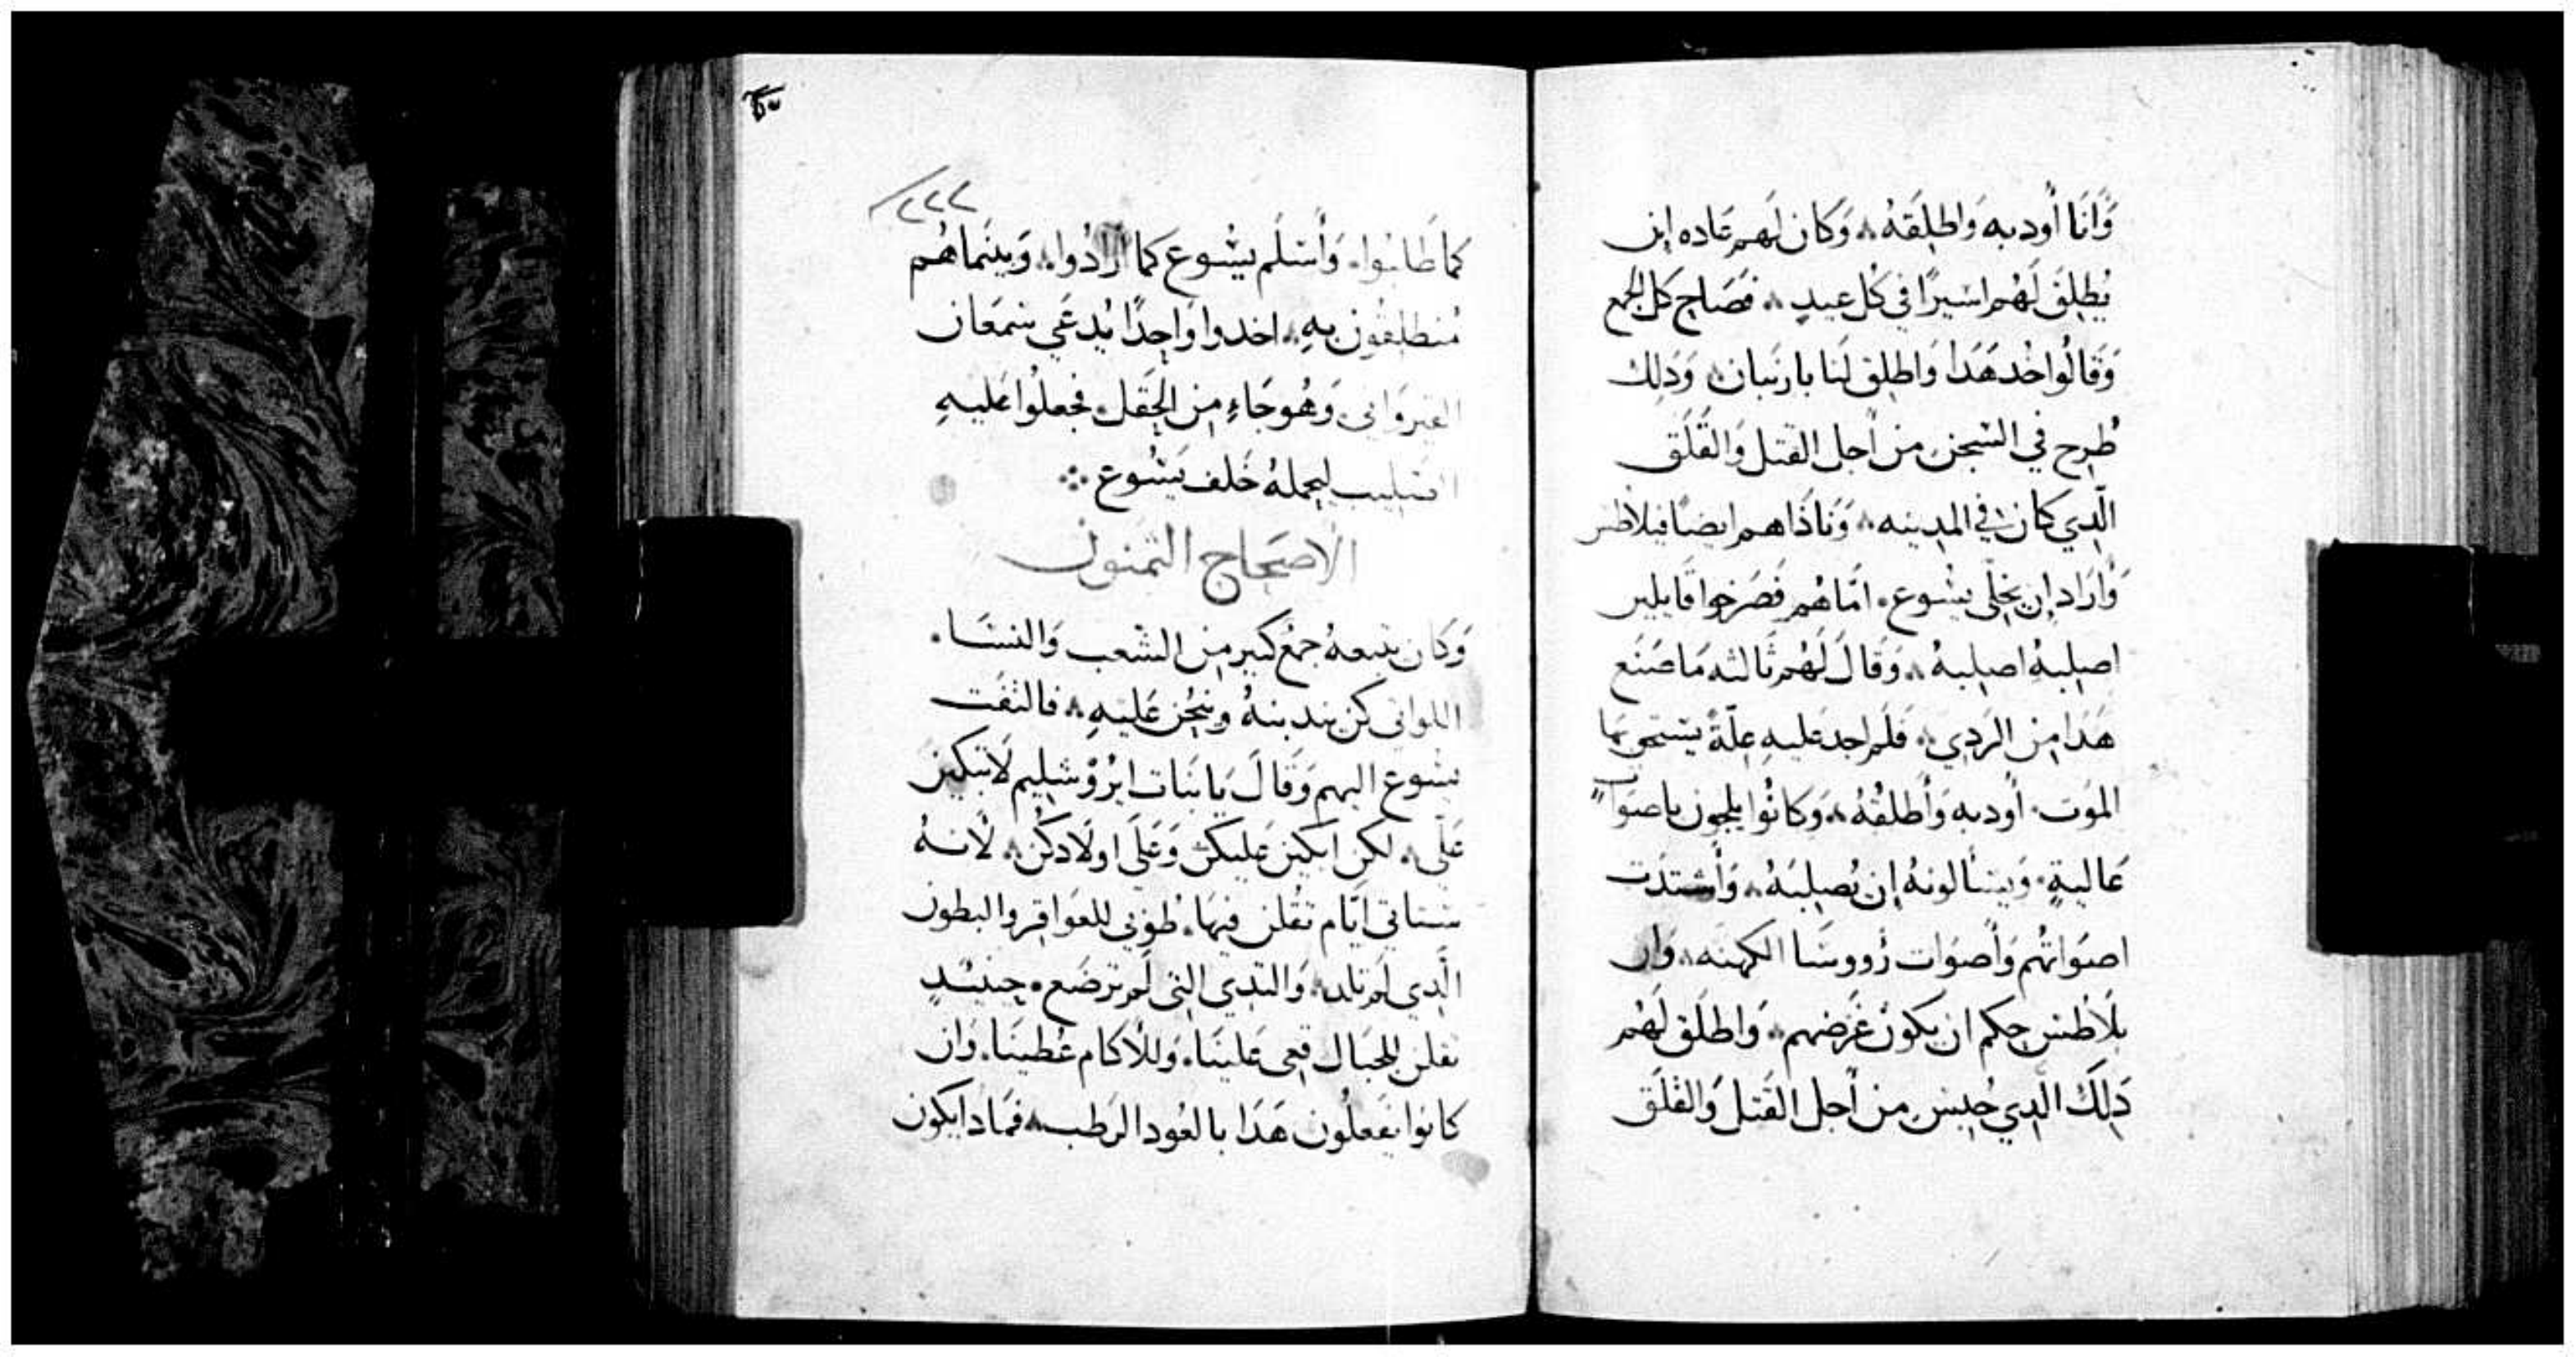 وَانَا أُودبه وَاطلِقَهُ ؞ وَكان لَهم عَاده اِن
يُطلِق لَهُم اسَيرًا في كُل عيدٍ ؞ فصَاح كل الجمع
وَقَالُوا خُد هَدَا وَاطلِق لَنا بارنَبان ؞ وَدَلِك
طُرِح في السَجن من أجل القتل وَالقَلَق
الَّدِي كان في المدِينه ؞ وَنادَاهم ايضًا فيلاطس
وَأرَاد اِن يخلّى يسُوع ٠ امّا هُم فصَرخوا قايلين
اصلِبهُ اصلبهُ ؞ وَقالَ لَهُم ثَالثه مَا صَنَع
هَدَا مِن الرَدِي ؞ فَلَم اجد عَليهِ عِلّةً يستحق بها
الموَت ٠ أُودبه وَأطلقُهُ ؞ وَكانُوا يلجون باصوَاتٍ
عَاليةٍ ٠ وَيسَألونهُ اِن يُصلِبَهُ ؞ وَأشتدَت
اصوَاتُهُم وَأصوَات رُووسَا الكهنَه ؞ وَان
بلَاطس حكم ان يكون غَرَضهم ؞ وَاطلَق لَهُم
دَلِكَ الَّدِي حُبِسَ من أجل القَتل وَالقَلَق
٢٢٢
كما طَلبُوا ٠ وَأسَلَم يسُوع كما أرَادُوا ؞ وَبينَما هُم
مُنطلقُون بهِ ؞ اخدوا وَاحِدًا يُدعَي سَمعَان
القيروَاني ٠ وَهُو جَاءٍ مِن الحَقل ٠ فجعلُوا عَليهِ
الصليب ليحملهُ خَلف يَسُوع ܀
الاصحَاح الثمنون
وَكان يتبعهُ جمعٌ كبير مِن الشَعب وَالنسَا ٠
اللواتى كن يندبنهُ وينُحن عَليهِ ؞ فالتفَت
يسُوع اليهم وَقالَ يَا بَنات ايرُوشليم لَا تبكين
عَلَّى ؞ لكن ابكين عَليكن وَعَلَى اولَادكُن ؞ لأنهُ
ستاتى ايَّام تقُلن فيهَا ٠ طُوبي للعَوَاقر والبطون
الَّدِي لَم تلد ؞ وَالتدي التى لَم ترضَع ٠ حينيدٍ
تقلن للجبَال قعِى عَلينَا ٠ وَللأكام غَطينَا ٠ وَان
كانوا يفعلُون هَدَا بالعُود الرَطب ؞ فمَادَا يكون